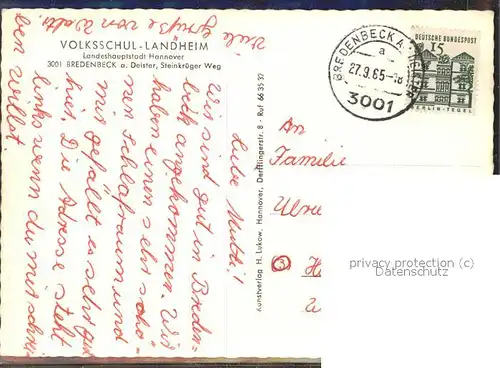 VOLKSSCHUL-LANDHEIM
Landeshauptstadt Hannover
3001 BREDENBECK a. Deister, Steinkrüger Weg
Liebe Mutti!
Wir sind gut in Breden-
beck angekommen. Wir
haben einen sehr schö-
nen Schlafraum und
mir gefällt es sehr gut
hier. Die Adresse steht
links wenn du mir schrei-
ben willst
Viele
grüße von
Kunstverlag H. Lukow, Hannover, Derfflingerstr. 8 - Ruf 66 35 37
BREDENBECK A. DEISTER
a
27.9.65-18
3001
DEUTSCHE BUNDESPOST
15
BERLIN-TEGEL
An
Familie
privacy protection (c)
Datenschutz